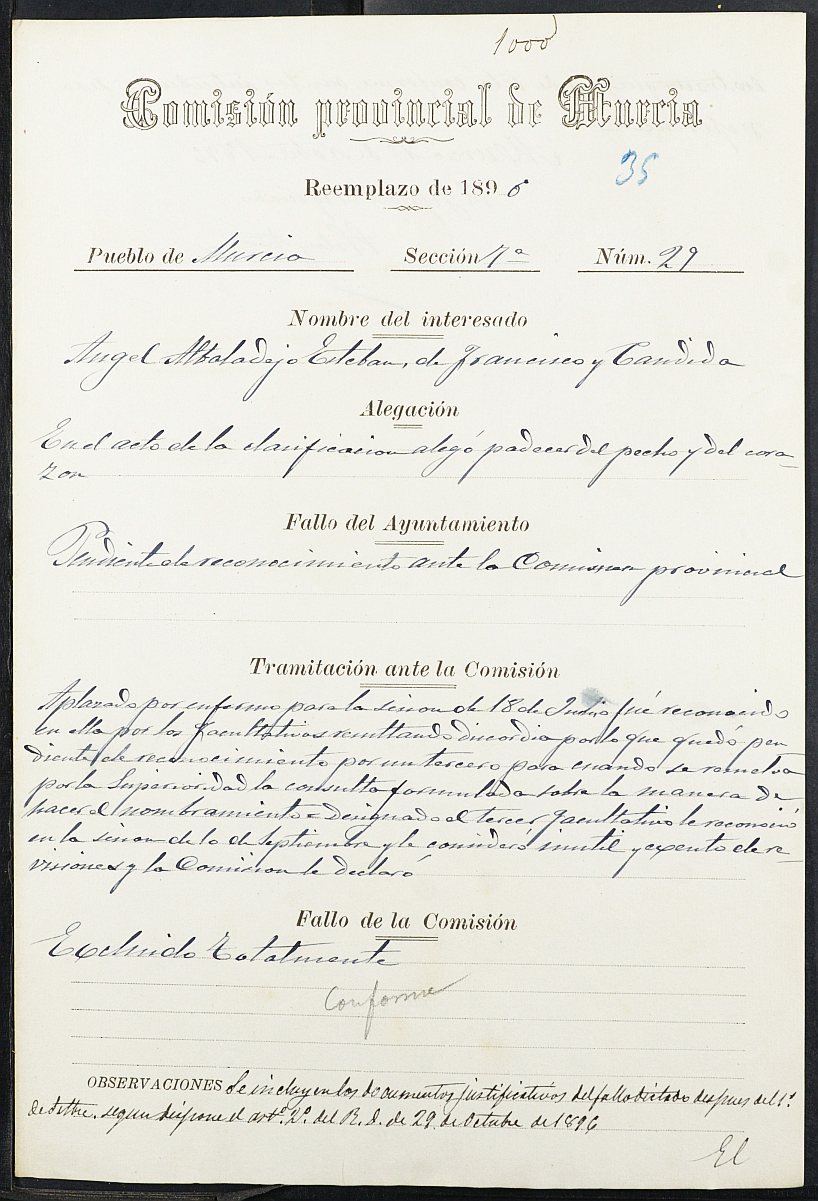 1000
Comisión provincial de Murcia
35
Reemplazo de 1896
Pueblo de Murcia Sección 7ª Núm. 29
Nombre del interesado
Angel Albaladejo Esteban, de Francisco y Candida
Alegación
En el acto de la clasificacion alegó padecer del pecho y del cora-
zon
Fallo del Ayuntamiento
Pendiente de reconocimiento ante la Comision provincial
Tramitación ante la Comisión
Aplazado por enfermo para la sesion de 18 de Junio fué reconocido
en ella por los facultativos resultando discordia por lo que quedó pen
diente de reconocimiento por un tercero para cuando se resuelva
por la Superioridad la consulta formulada sobre la manera de
hacer el nombramiento = designado el tercer facultativo le reconoció
en la sesion de 10 de Septiembre y le consideró inutil y exento de re-
visiones y la Comision le declaró
Fallo de la Comisión
Excluido totalmente
Conforme
OBSERVACIONES Se incluyen los documentos justificativos del fallo dictado despues del 1º
de Stbre. segun dispone el artº. 2º. del R. D. de 29 de Octubre de 1896
El